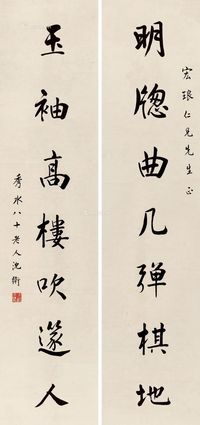 宏琅仁兄先生正
明牕曲几弹棋地
玉袖高樓吹篴人
秀水八十老人沈衛